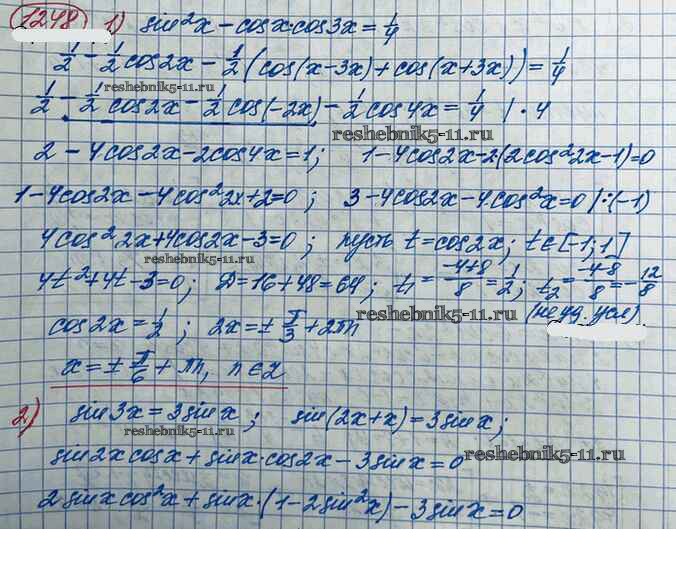 1248 1) sin²x - cosx·cos3x = 1/4
1/2 - 1/2 cos2x - 1/2 (cos(x-3x) + cos(x+3x)) = 1/4
reshebnik5-11.ru
1/2 - 1/2 cos2x - 1/2 cos(-2x) - 1/2 cos4x = 1/4 |·4
reshebnik5-11.ru
2 - 4cos2x - 2cos4x = 1; 1 - 4cos2x - 2(2cos²2x - 1) = 0
1 - 4cos2x - 4cos²2x + 2 = 0; 3 - 4cos2x - 4cos²x = 0 |:(-1)
4cos²2x + 4cos2x - 3 = 0; пусть t = cos2x; t ∈ [-1; 1]
4t² + 4t - 3 = 0; D = 16 + 48 = 64; t₁ = (-4+8)/8 = 1/2; t₂ = (-4-8)/8 = -12/8
(не уд. усл)
cos2x = 1/2; 2x = ± π/3 + 2πn
reshebnik5-11.ru
x = ± π/6 + πn, n ∈ Z
2) sin3x = 3sinx; sin(2x+x) = 3sinx;
reshebnik5-11.ru
sin2x cosx + sinx·cos2x - 3sinx = 0
reshebnik5-11.ru
2sinxcos²x + sinx·(1 - 2sin²x) - 3sinx = 0